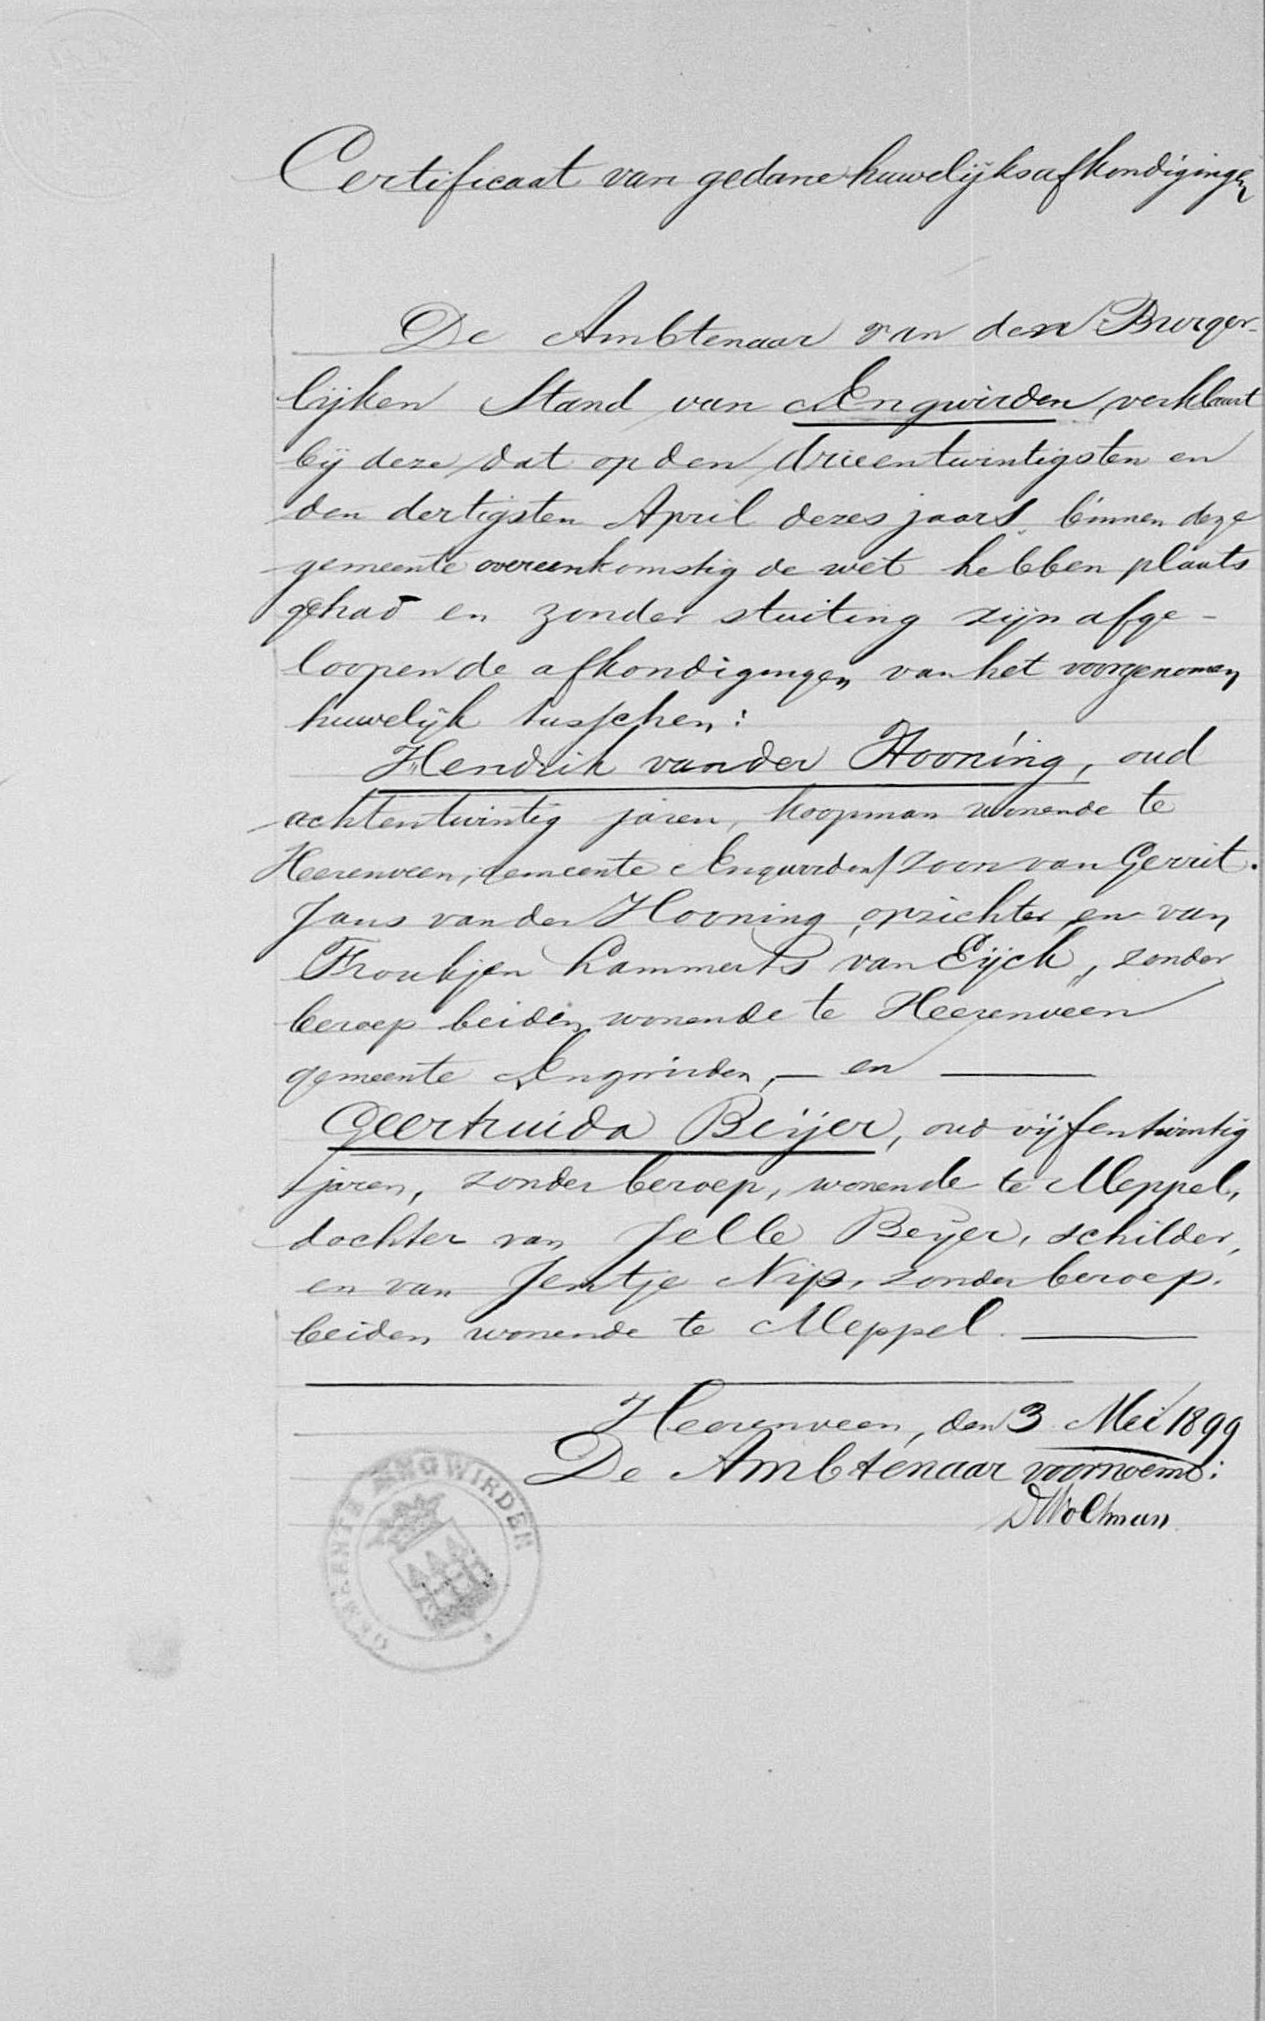 Certificaat van gedane huwelijksafkondigingen
De Ambtenaar van den Burger-
lijken Stand van Aengwirden, verklaart
bij deze dat op den drieentwintigsten en
den dertigsten April dezes jaars binnen deze
gemeente overeenkomstig de wet hebben plaats
gehad en zonder stuiting zijn afge-
loopen de afkondigingen van het voorgenomen
huwelijk tusschen:
Hendrik van der Hooning, oud
achtentwintig jaren, koopman wonende te
Heerenveen, gemeente Aengwirden, zoon van Gerrit
Jans van der Hooning, opzichter en van
Froukjen Lammerts van Eijck, zonder
beroep beiden wonende te Heerenveen
gemeente Aengwirden, — en —
Geertruida Beijer, oud vijfentwintig
jaren, zonder beroep, wonende te Meppel,
dochter van Jelle Beijer, schilder,
en van Jentje Nip, zonder beroep,
beiden wonende te Meppel. —
Heerenveen, den 3 Mei 1899
De Ambtenaar voornoemd:
GEMEENTE AENGWIRDEN